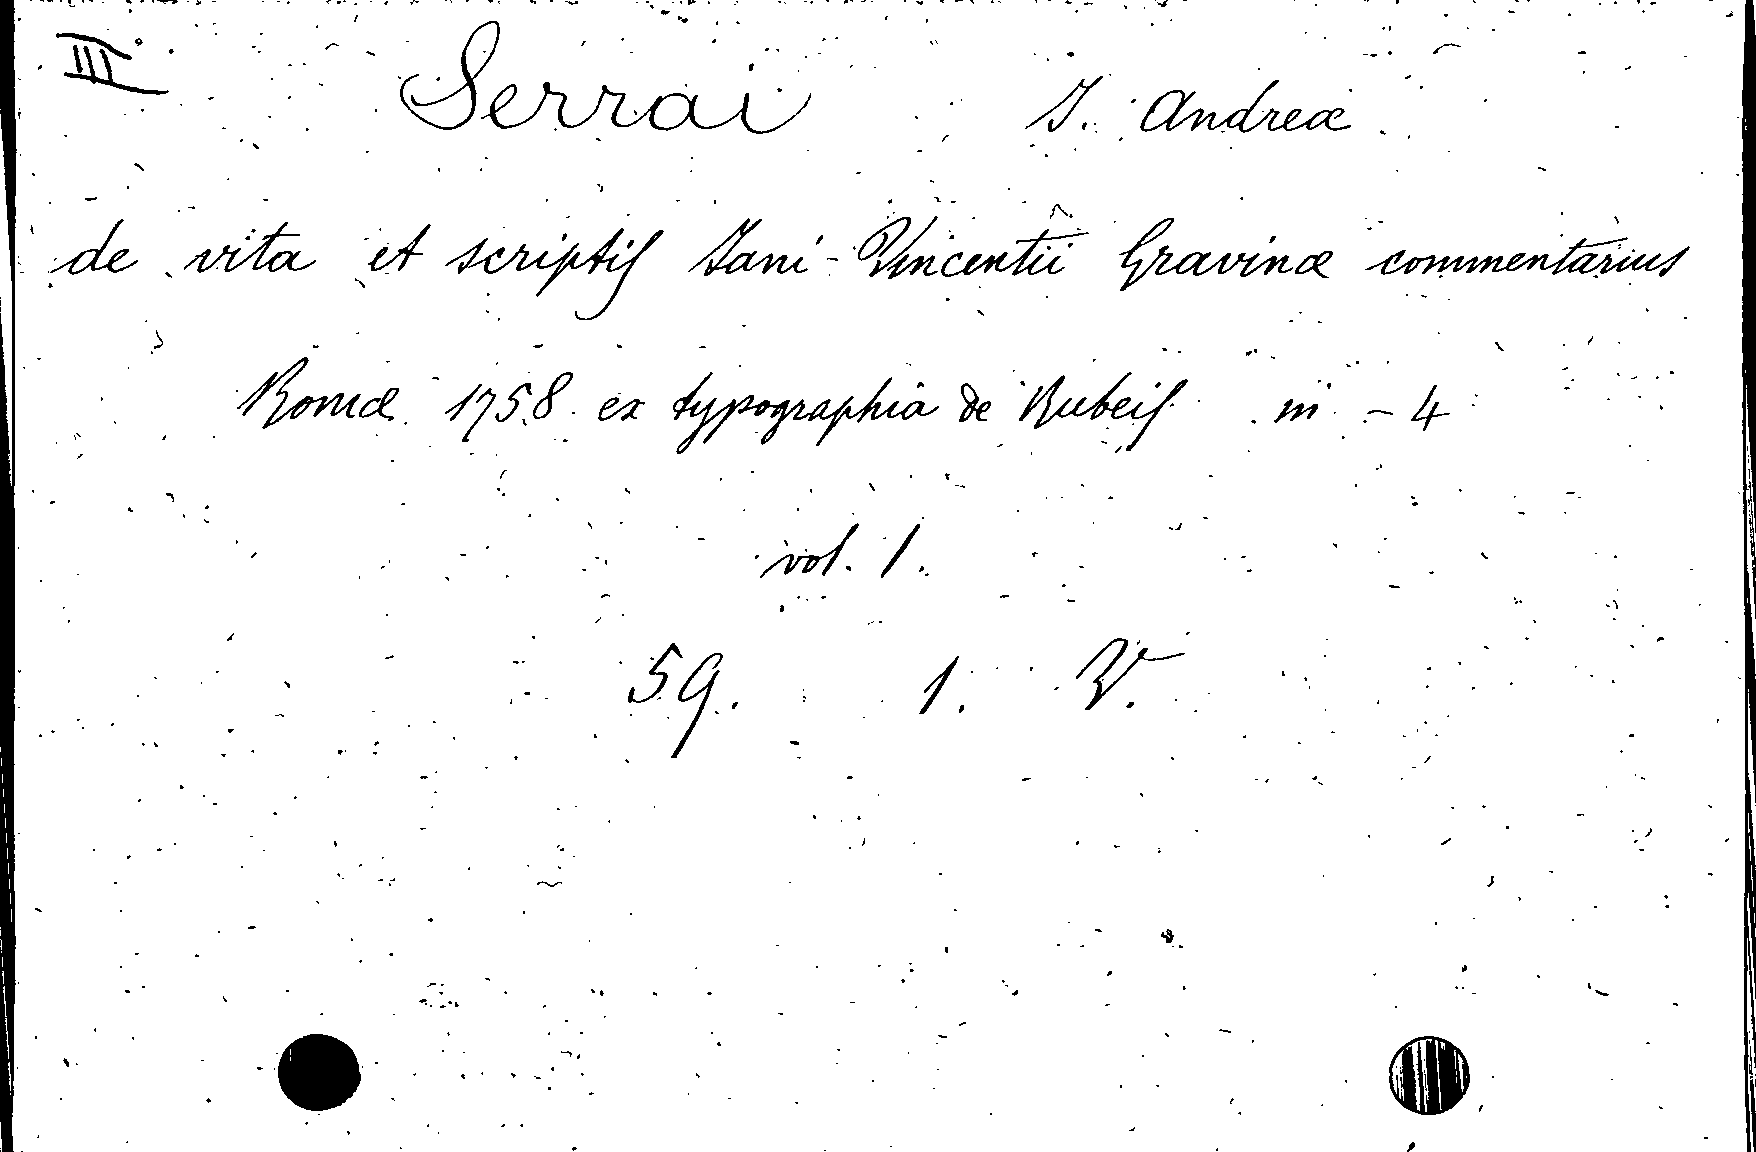 III Serrai J. Andreæ
de vita et scriptis Jani-Vincentii Gravinæ commentarius
Romæ 1758 ex typographia de Rubeis in - 4
vol. 1.
59. 1. V.